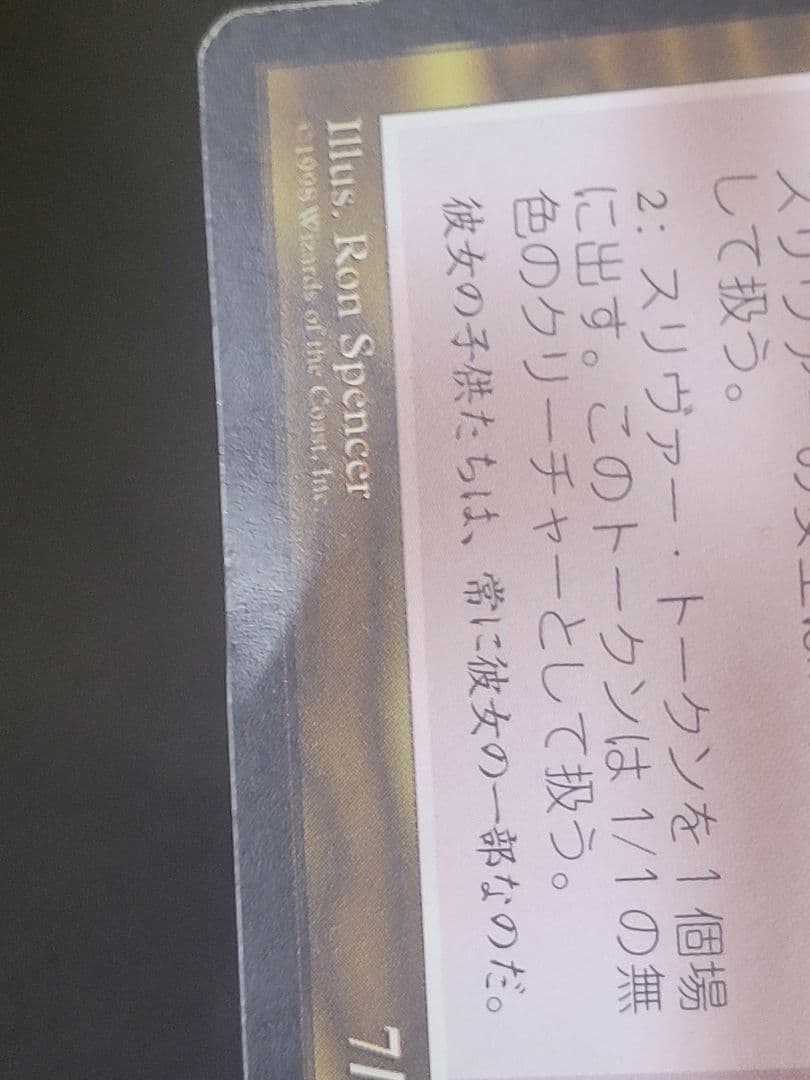 して扱う。
2: スリヴァー・トークンを1個場
に出す。このトークンは1/1の無
色のクリーチャーとして扱う。
彼女の子供たちは、常に彼女の一部なのだ。
7/
Illus. Ron Spencer
©1998 Wizards of the Coast, Inc.